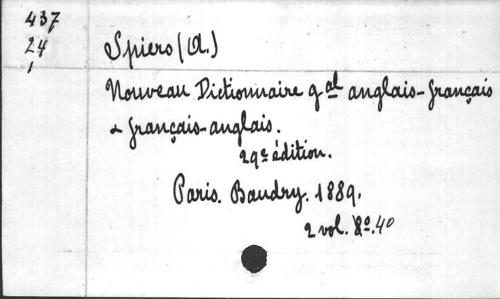 437
24
1
Spiers (A.)
Nouveau Dictionnaire gal anglais-français
& français-anglais.
29e édition.
Paris. Baudry. 1889.
2 vol. 8o. 40